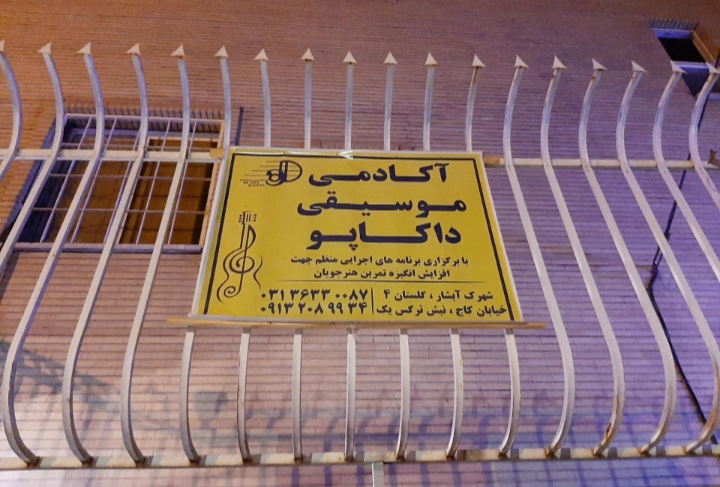 آکادمی
موسیقی
داکاپو
با برگزاری برنامه های اجرایی منظم جهت
افزایش انگیزه تمرین هنرجویان
شهرک آبشار ، گلستان ۴
خیابان کاج ، نبش نرگس یک
۰۳۱ ۳۶۳۳ ۰۰۸۷
۰۹۱۳ ۲۰۸ ۹۹ ۳۴